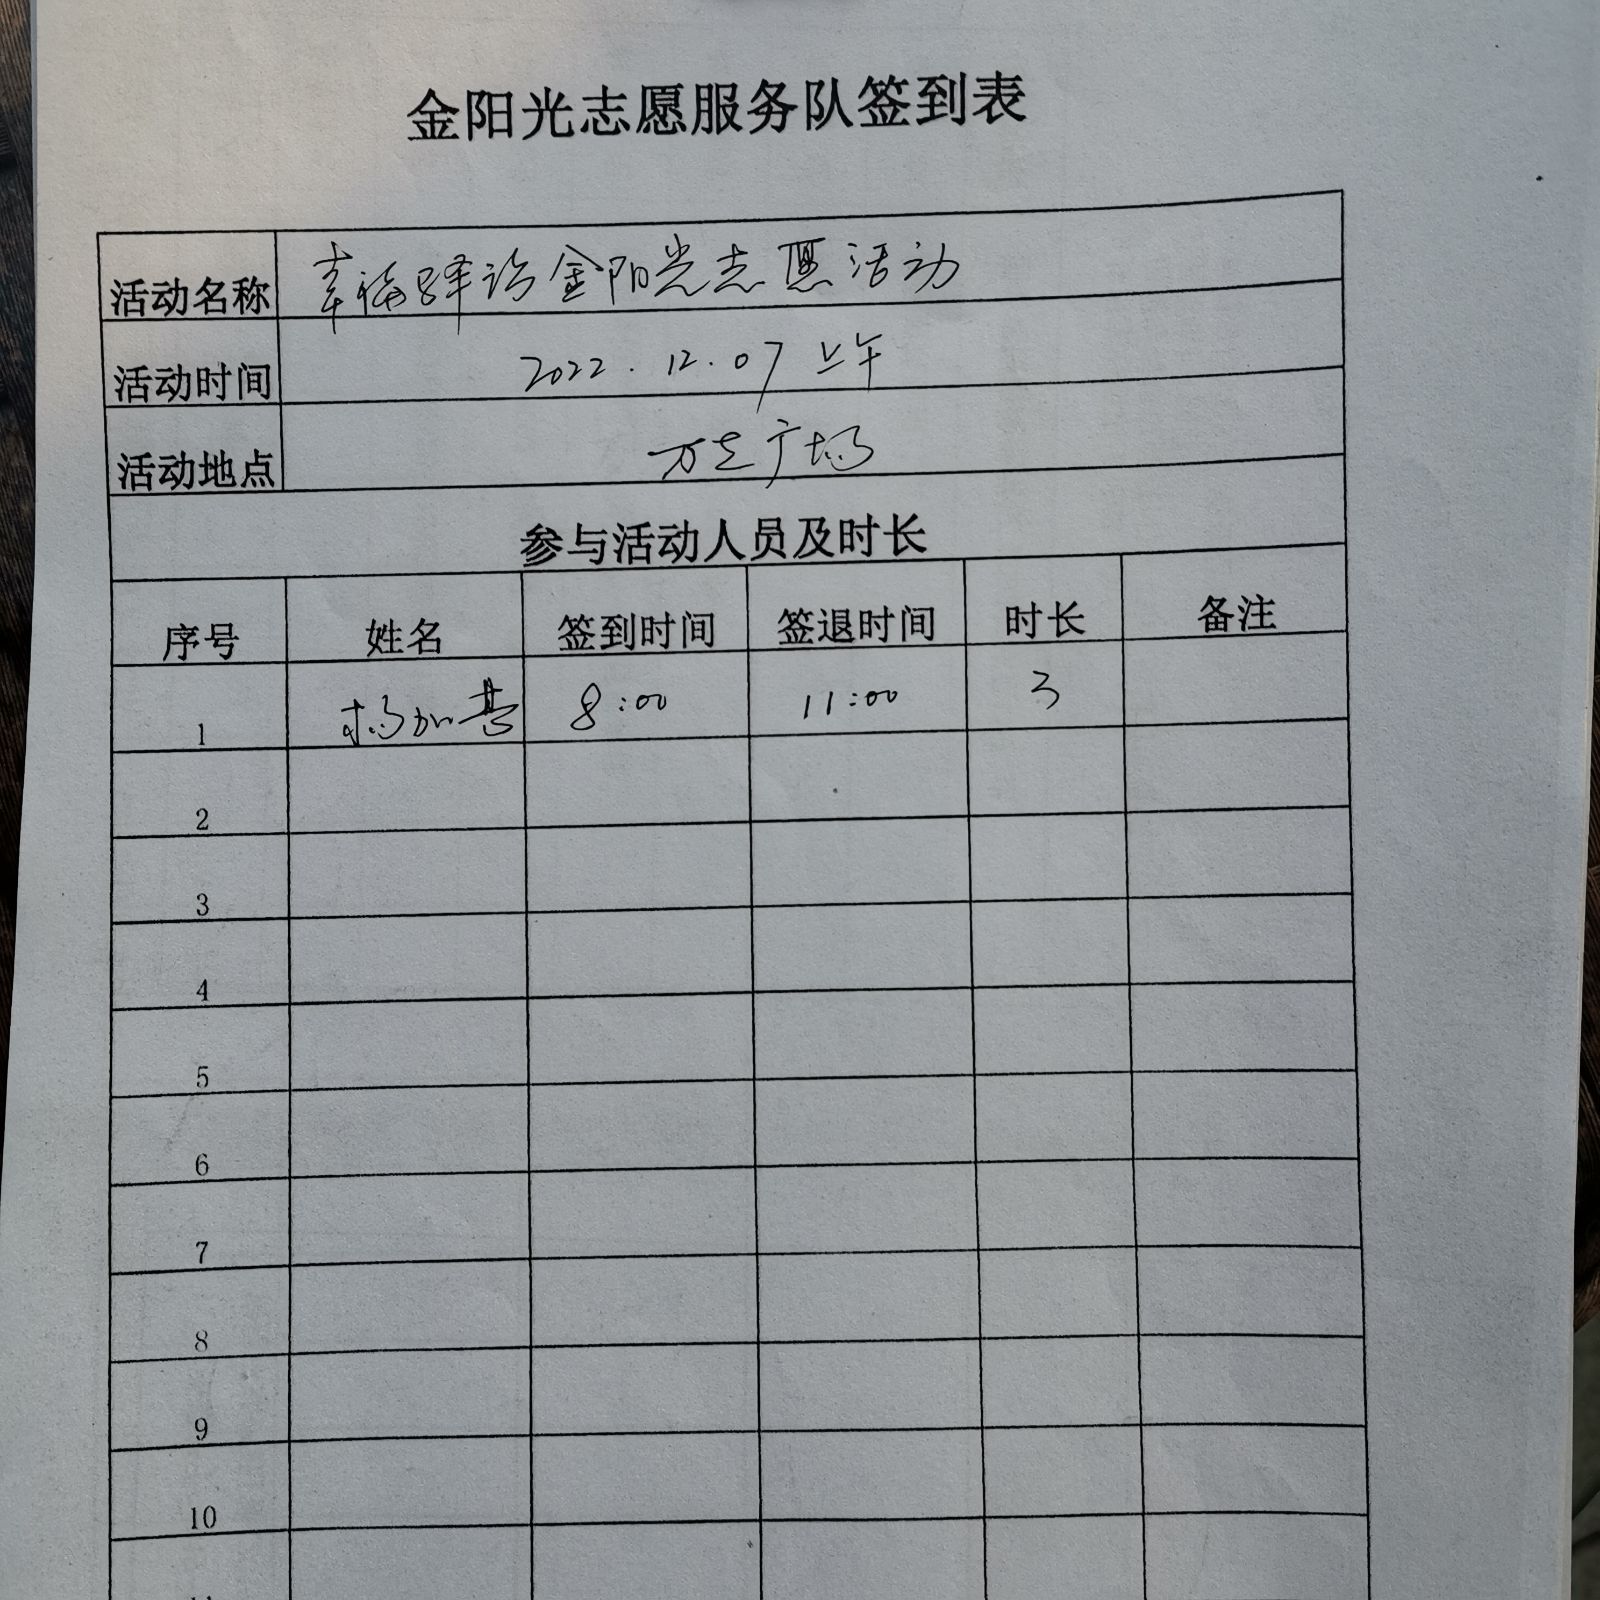 金阳光志愿服务队签到表
活动名称 幸福驿站金阳光志愿活动
活动时间 2022.12.07 上午
活动地点 万达广场
参与活动人员及时长
序号 姓名 签到时间 签退时间 时长 备注
1 杨加 8:00 11:00 3
2
3
4
5
6
7
8
9
10